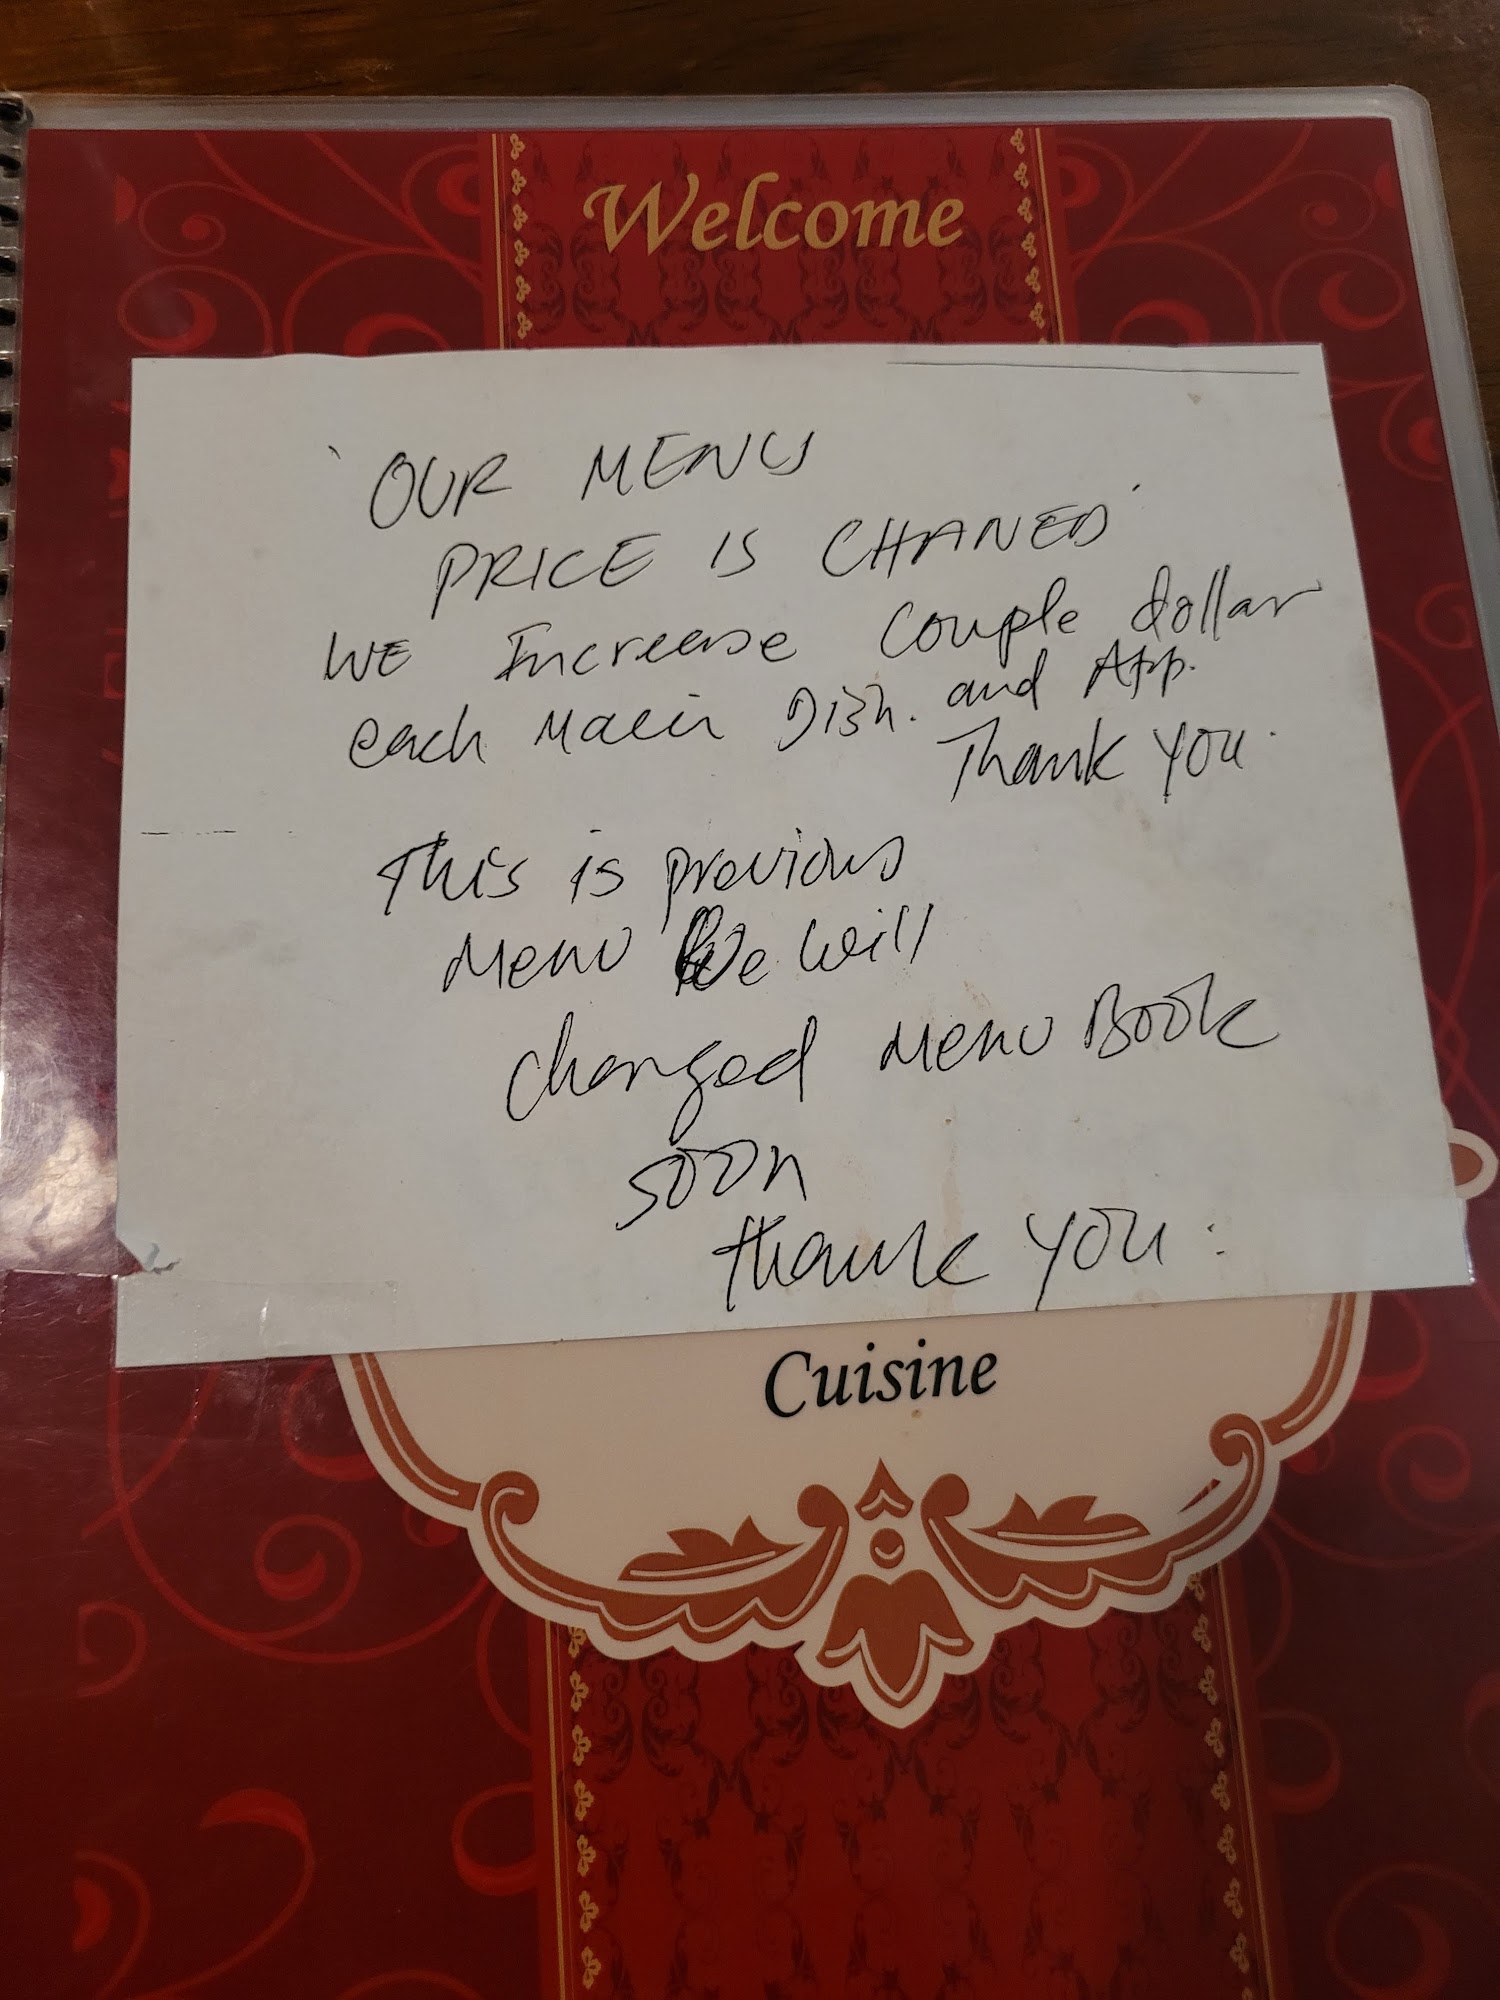 Welcome
OUR MENU
PRICE IS CHANED
WE Increase Couple dollar
each Main Dish. and App.
Thank YOU.
This is previous
Menu We Will
changed Menu Book
soon
thank YOU.
Cuisine